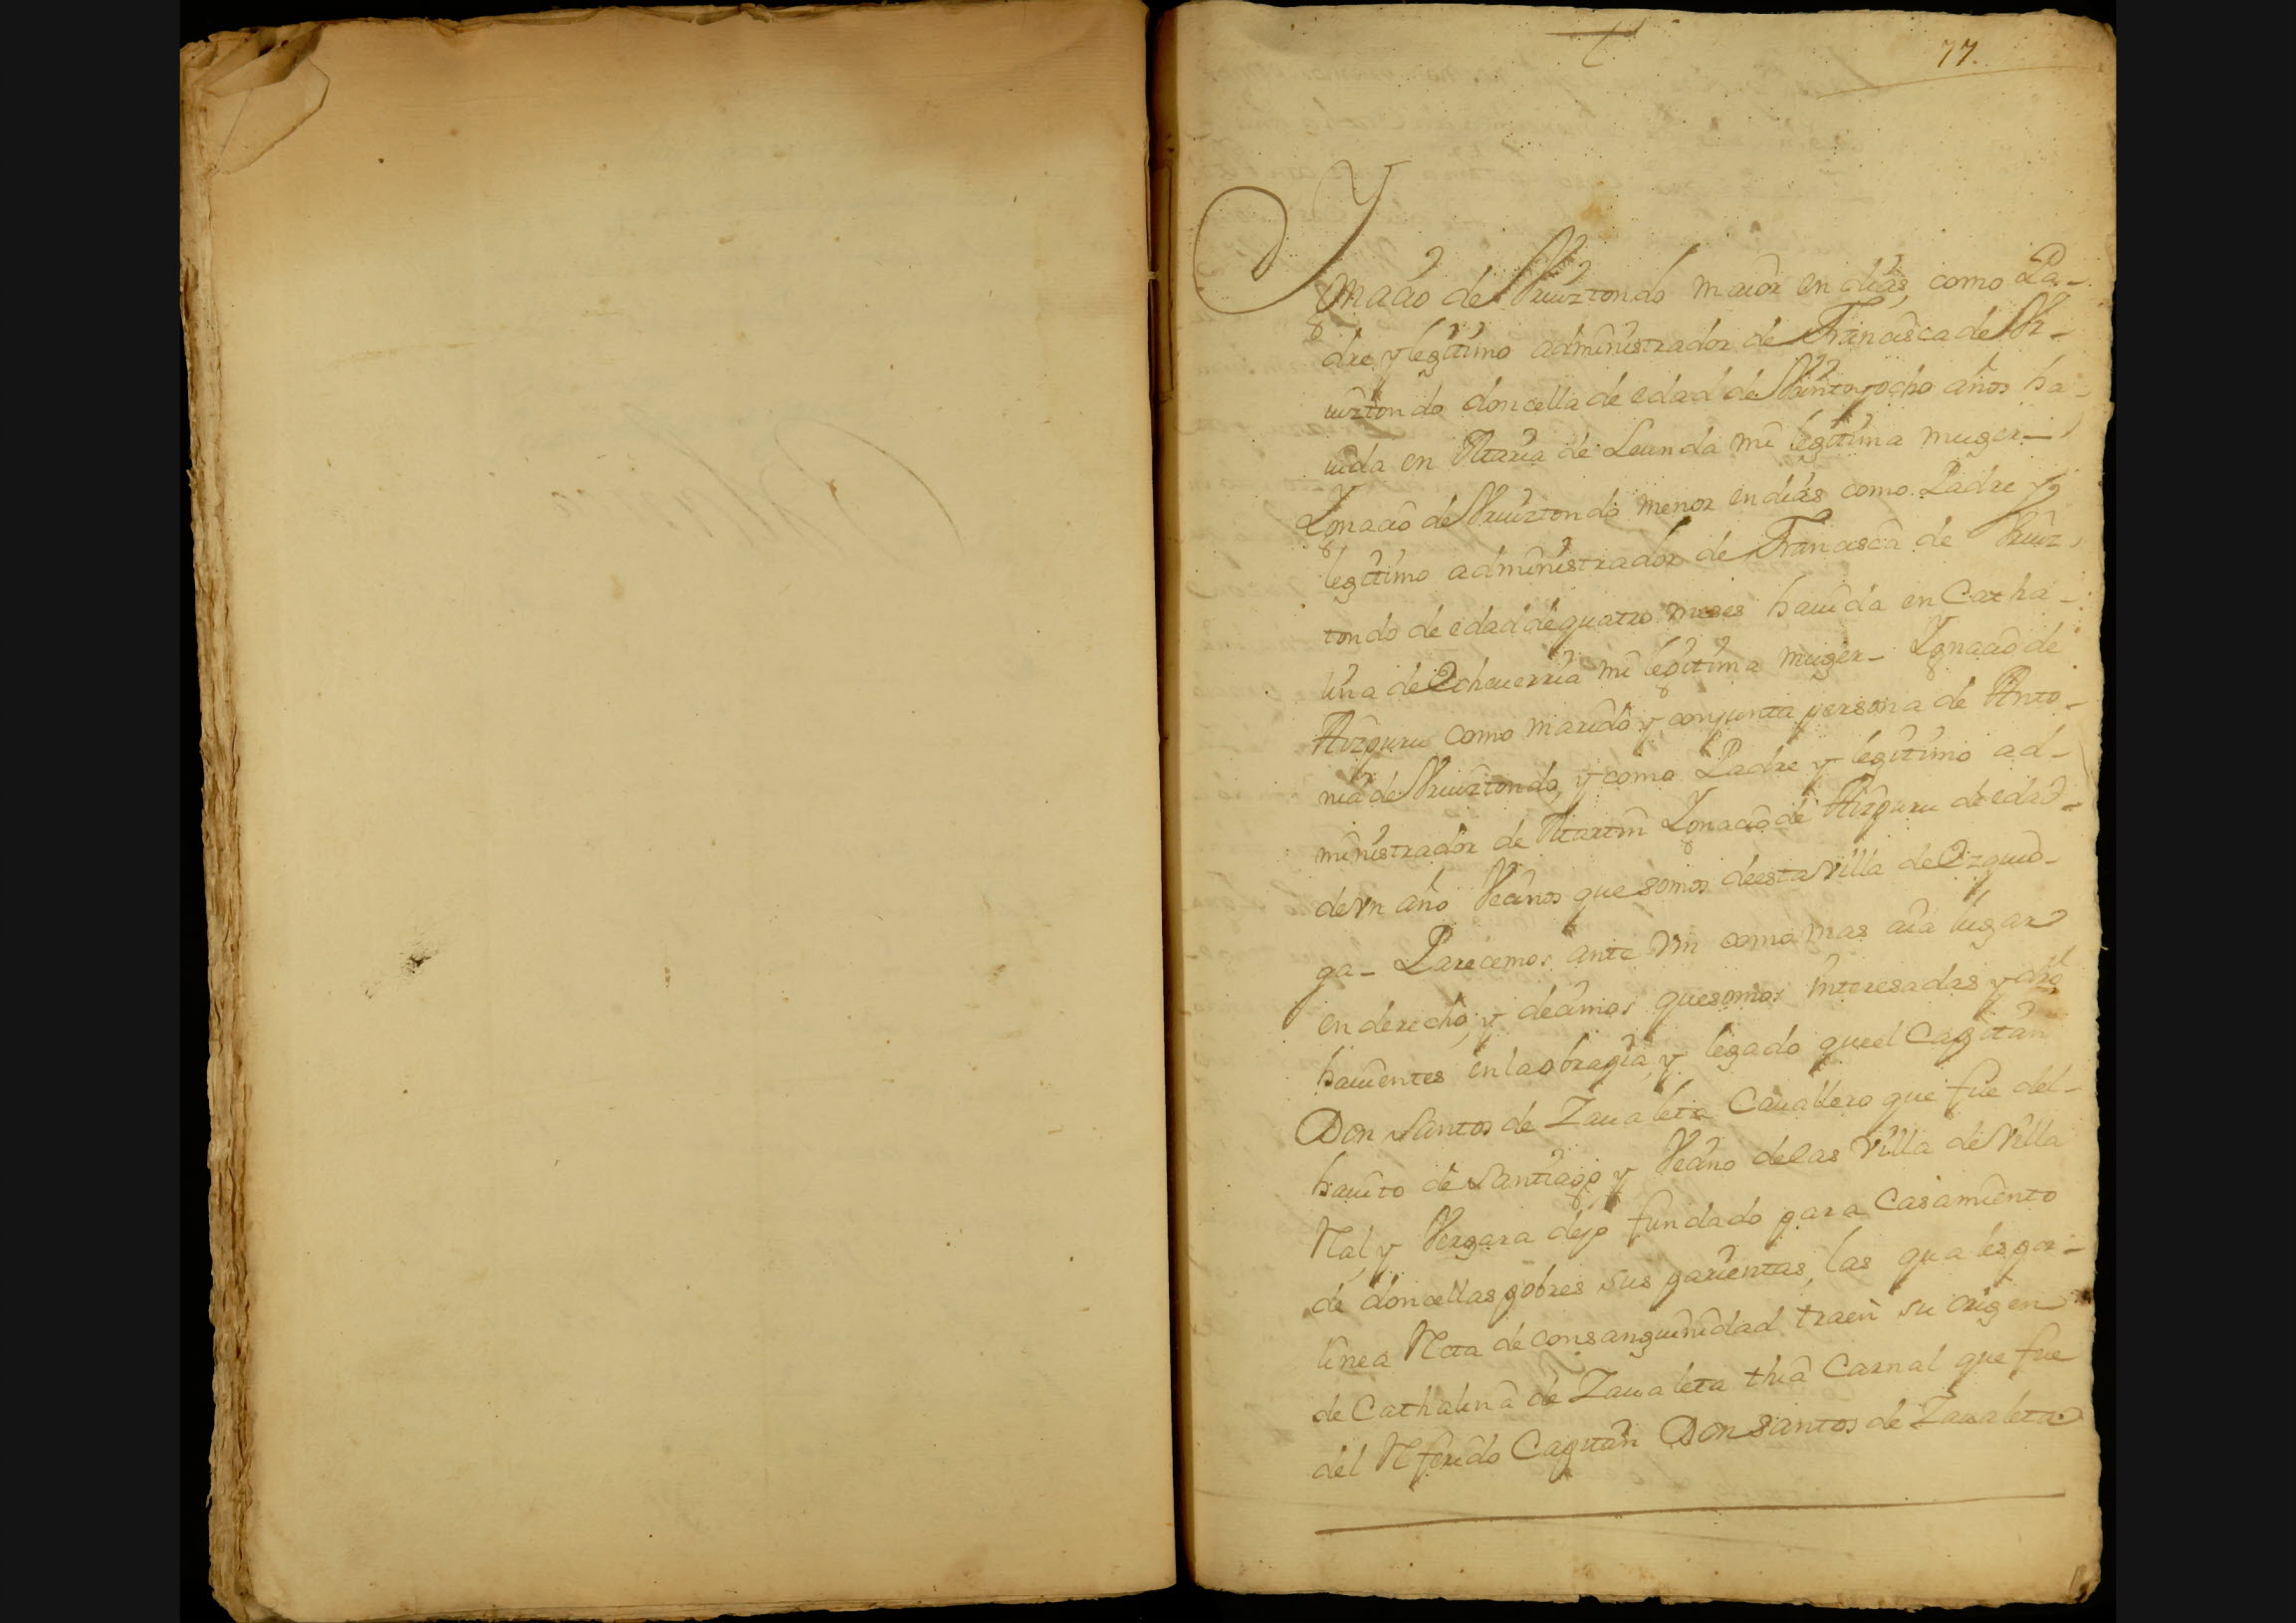 77.
Ygnacio de Vruiztondo maior en dias, como Pa-
dre y legitimo administrador de Francisca de Vr-
uiztondo doncella de edad de Veinte y ocho años ha-
uida en Maria de Leunda mi legitima muger-
Ygnacio de Vruiztondo menor en dias como Padre y
legitimo administrador de Francisca de Vruiz-
tondo de edad de quatro meses hauida en Catha-
lina de Echeuerria mi legitima muger- Ygnacio de
Aizpuru como marido y conjunta persona de Anto-
nia de Vruiztondo, y como Padre y legitimo ad-
ministrador de Martin Ygnacio de Aizpuru de edad-
de vn año Vecinos que somos de esta Villa de Ezquio-
ga- Parecemos ante Vm como mas aia lugar
en derecho, y decimos que somos interesadas y dro
hauientes en la obra pia, y legado que el Capitan
Don Santos de Zaualeta Cauallero que fue del-
hauito de Santiago y Vecino de las Villa de Villa
Ral, y Vergara dejo fundado para Casamiento
de doncellas pobres sus parientas, las quales por-
linea Recta de consanguinidad traen su origen
de Cathalina de Zaualeta thia Carnal que fue
del Referido Capitan Don Santos de Zaualeta